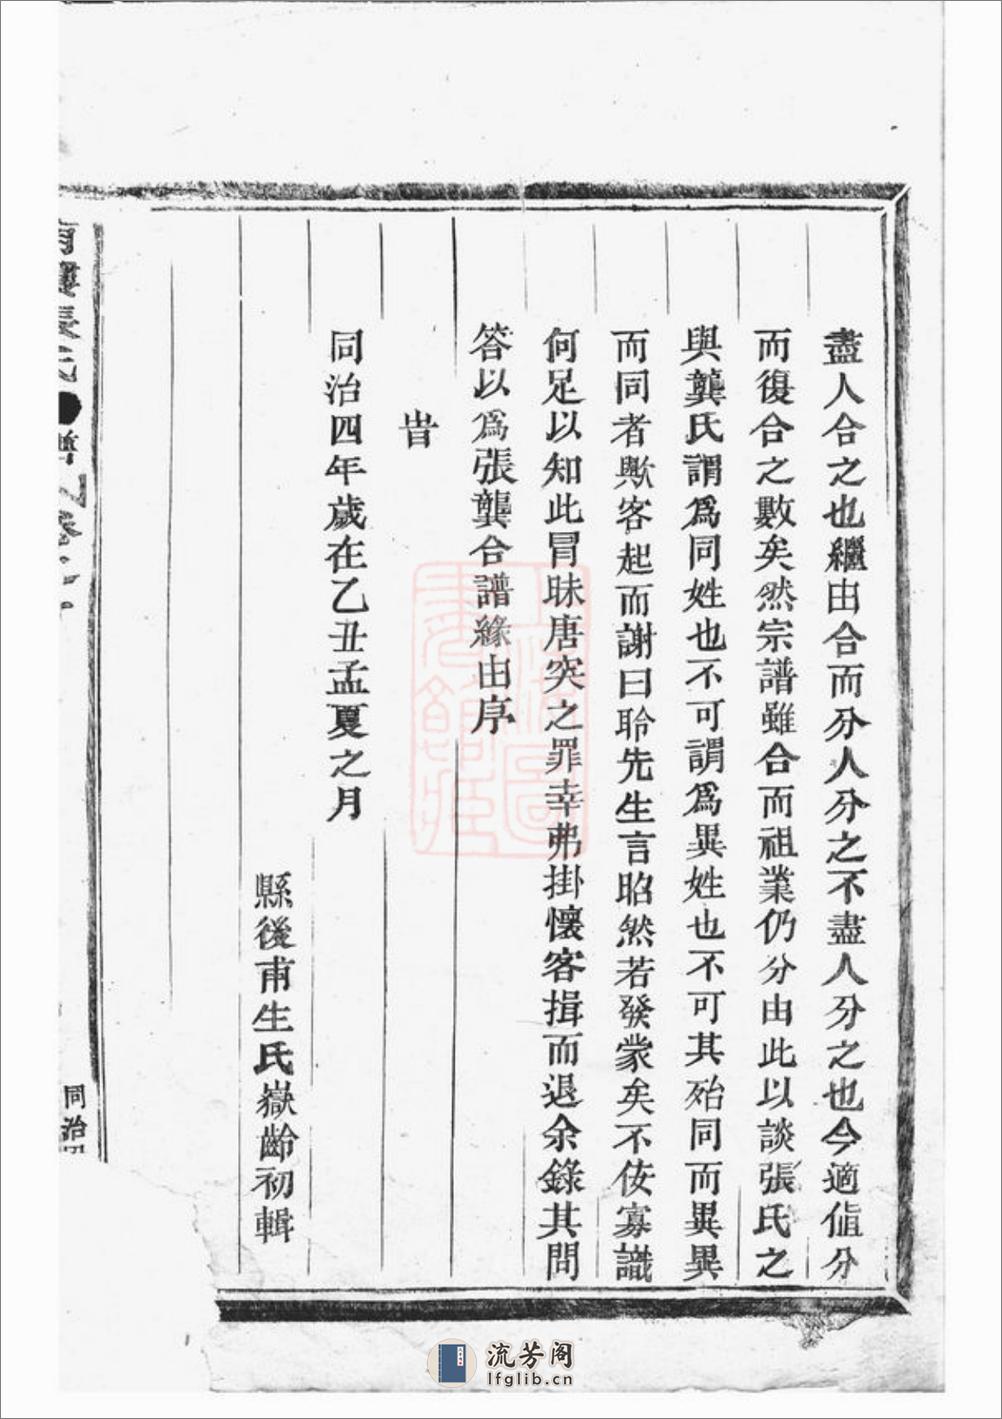 盡人合之也繼由合而分人分之不盡人分之也今適值分
而復合之數矣然宗譜雖合而祖業仍分由此以談張氏之
與龔氏謂為同姓也不可謂為異姓也不可其殆同而異異
而同者歟客起而謝曰聆先生言昭然若發蒙矣不佞寡識
何足以知此冒昧唐突之罪幸弗掛懷客揖而退余錄其問
答以為張龔合譜緣由序
旹
同治四年歲在乙丑孟夏之月
縣後甫生氏嶽齡初輯
張氏
譜
卷
同治四
流芳阁
lfglib.cn